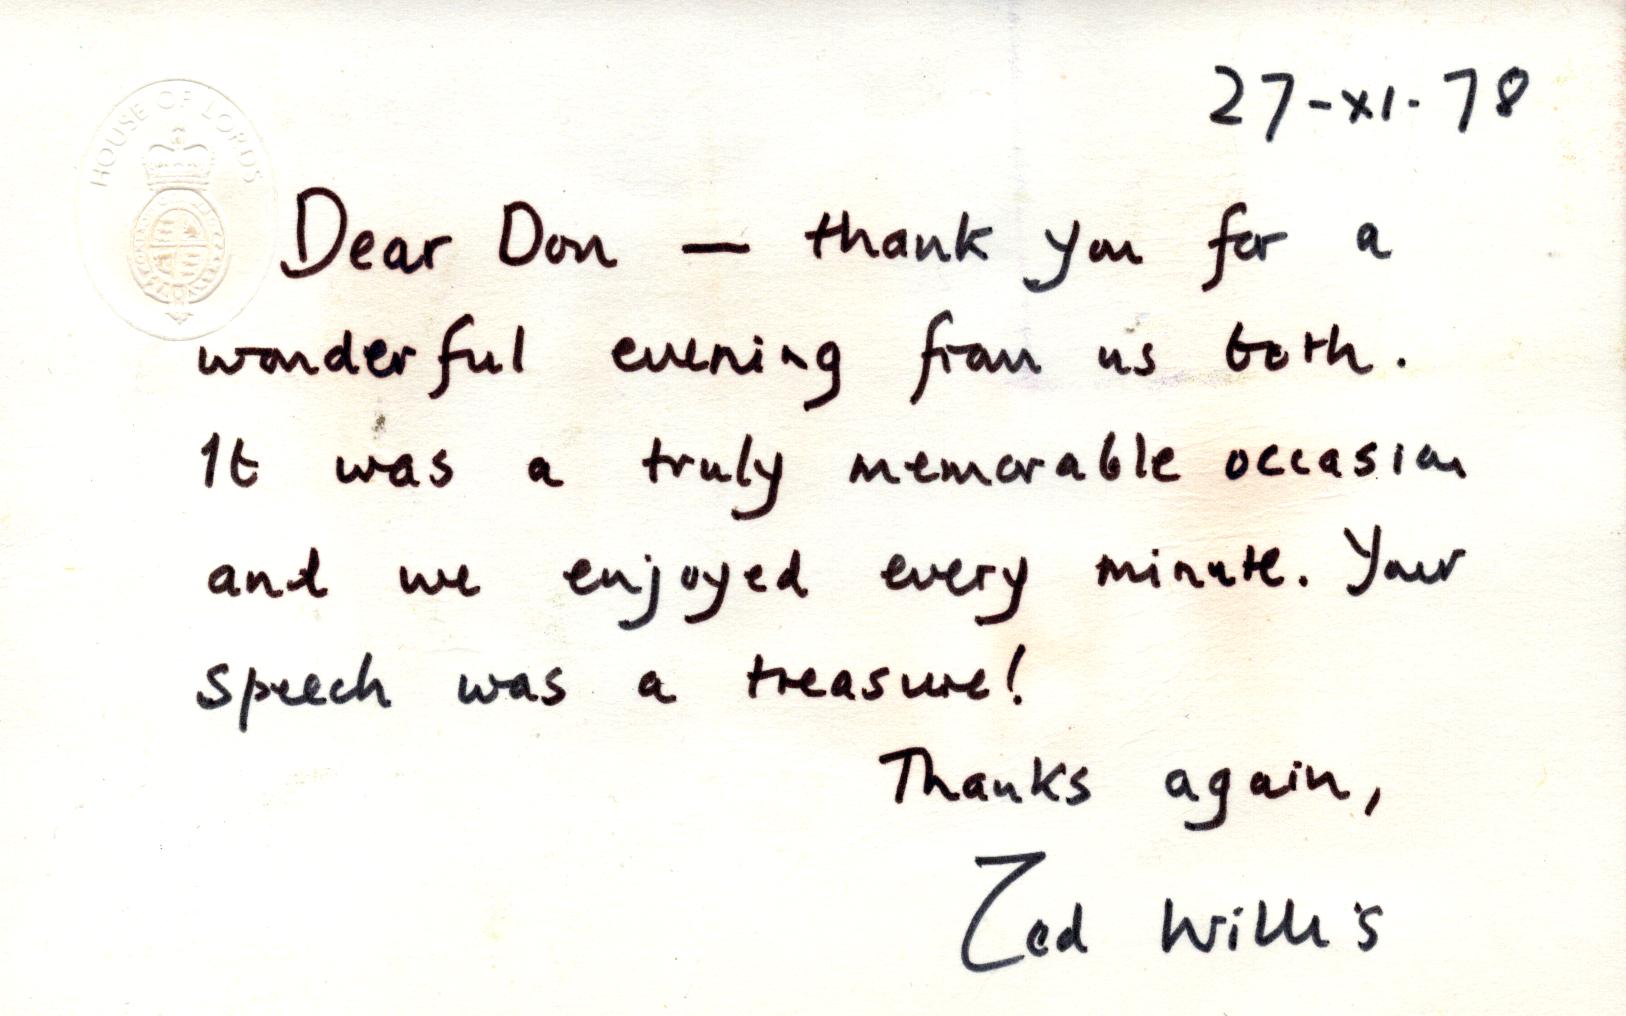 HOUSE OF LORDS
27-XI-78
Dear Don — thank you for a
wonderful evening from us both.
It was a truly memorable occasion
and we enjoyed every minute. Your
speech was a treasure!
Thanks again,
Ted Willis